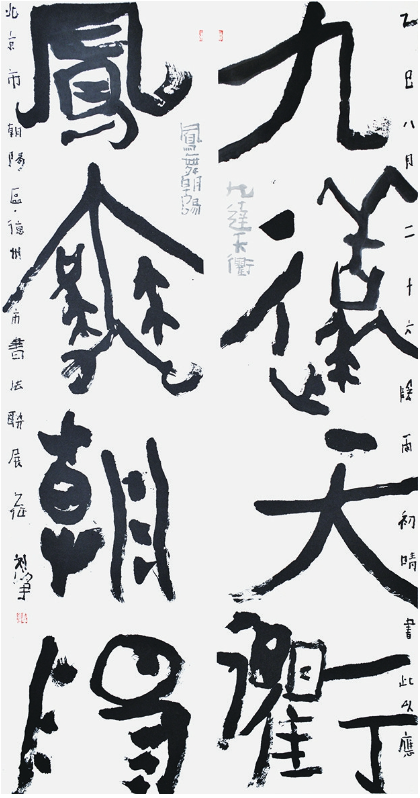 乙巳八月二十六陰雨初晴書此以應
九達天衢
九達天衢
鳳舞朝陽
鳳舞朝陽
北京市朝陽區·德州市書法聯展